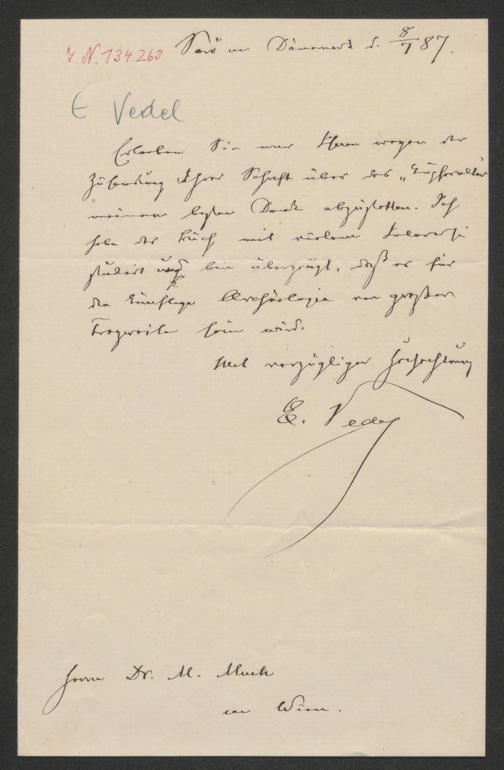 I. N. 134.263
Sorö in Dänemark d. 8/7 87.
E Vedel
Erlauben Sie mir Ihnen wegen der
Zusendung Ihrer Schrift über das „Kupferalter
meinen besten Dank abzustatten. Ich
habe das Buch mit vielem Interesse
studiert und bin überzeugt, daß es für
die künftige Archäologie von großer
Tragweite sein wird.
Mit vorzüglicher Hochachtung
E. Vedel
Herrn Dr. M. Much
in Wien.